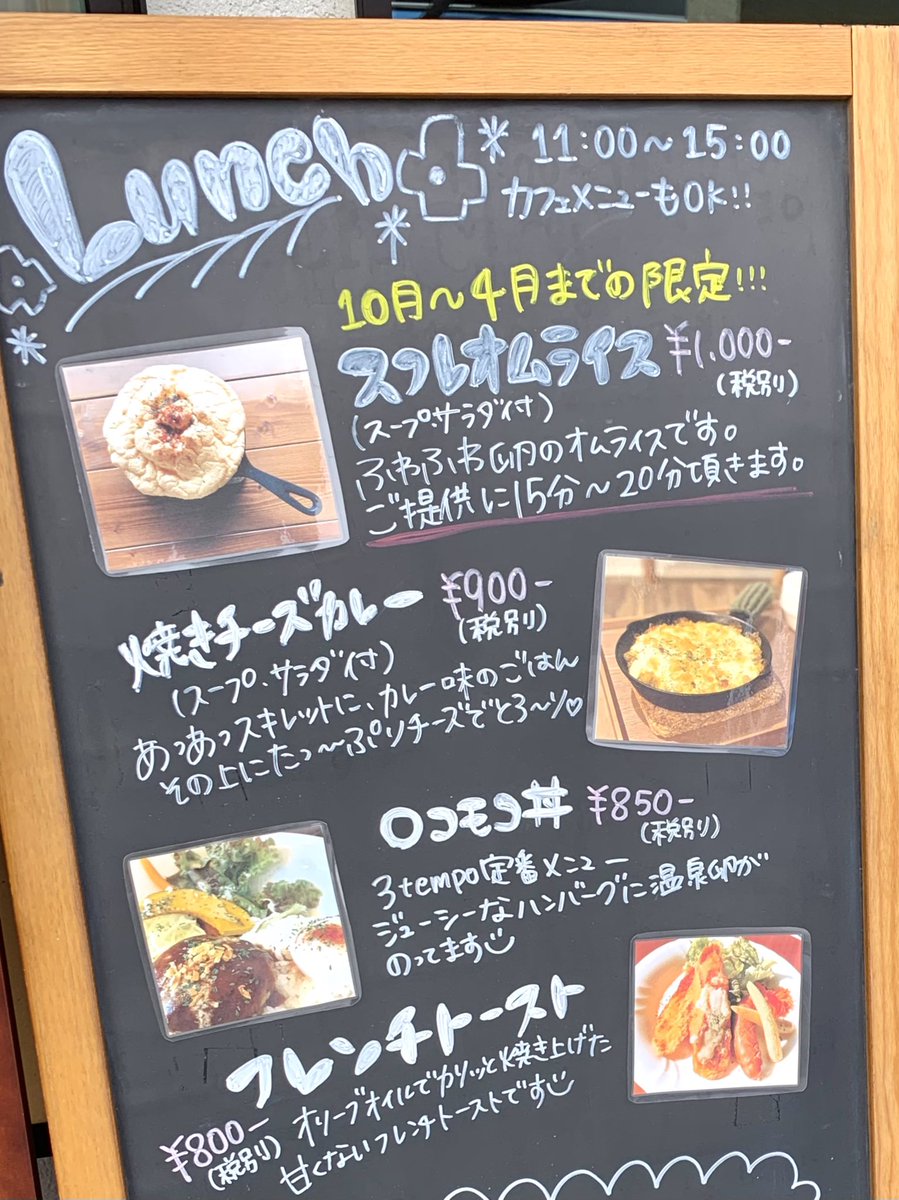 Lunch
11:00～15:00
カフェメニューもOK!!
10月～4月までの限定!!!
スフレオムライス ¥1,000-
(税別)
(スープ・サラダ付)
ふわふわ卵のオムライスです。
ご提供に15分～20分頂きます。
焼きチーズカレー ¥900-
(税別)
(スープ・サラダ付)
あっあっスキレットに、カレー味のごはん
その上にたっ～ぷりチーズでとろ～り♡
ロコモコ丼 ¥850-
(税別)
3tempo定番メニュー
ジューシーなハンバーグに温泉卵が
のってます
フレンチトースト
¥800-
(税別)
オリーブオイルでカリッと焼き上げた
甘くないフレンチトーストです